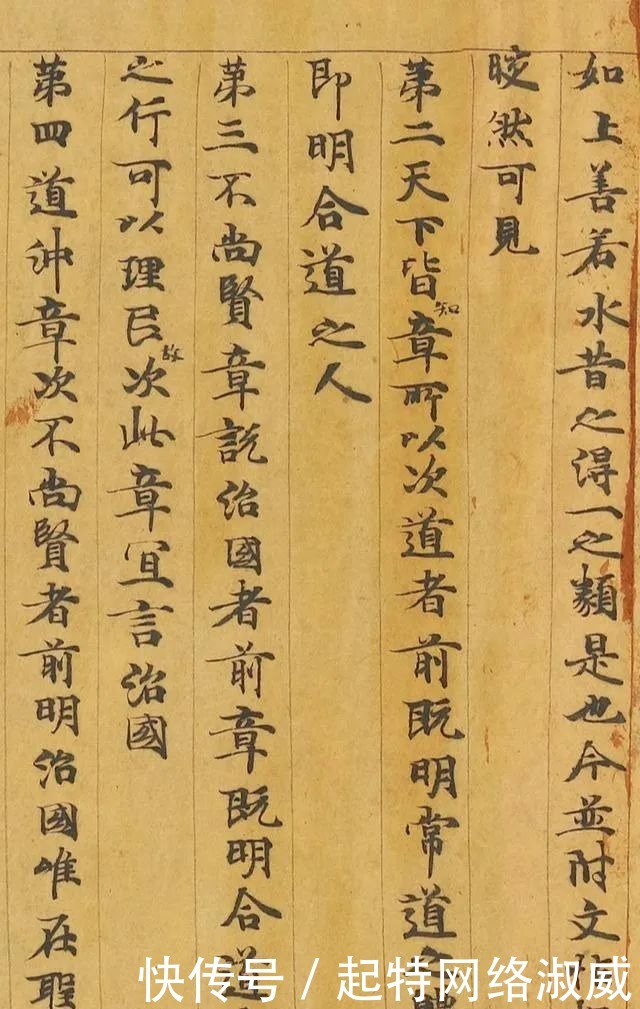 如上善若水昔之得一之類是也今並附文
晈然可見
第二天下皆知章所以次道者前既明常道
即明合道之人
第三不尚賢章説治國者前章既明合道
之行可以理民故次此章宜言治國
第四道沖章次不尚賢者前明治國唯在聖
快传号 / 起特网络淑威